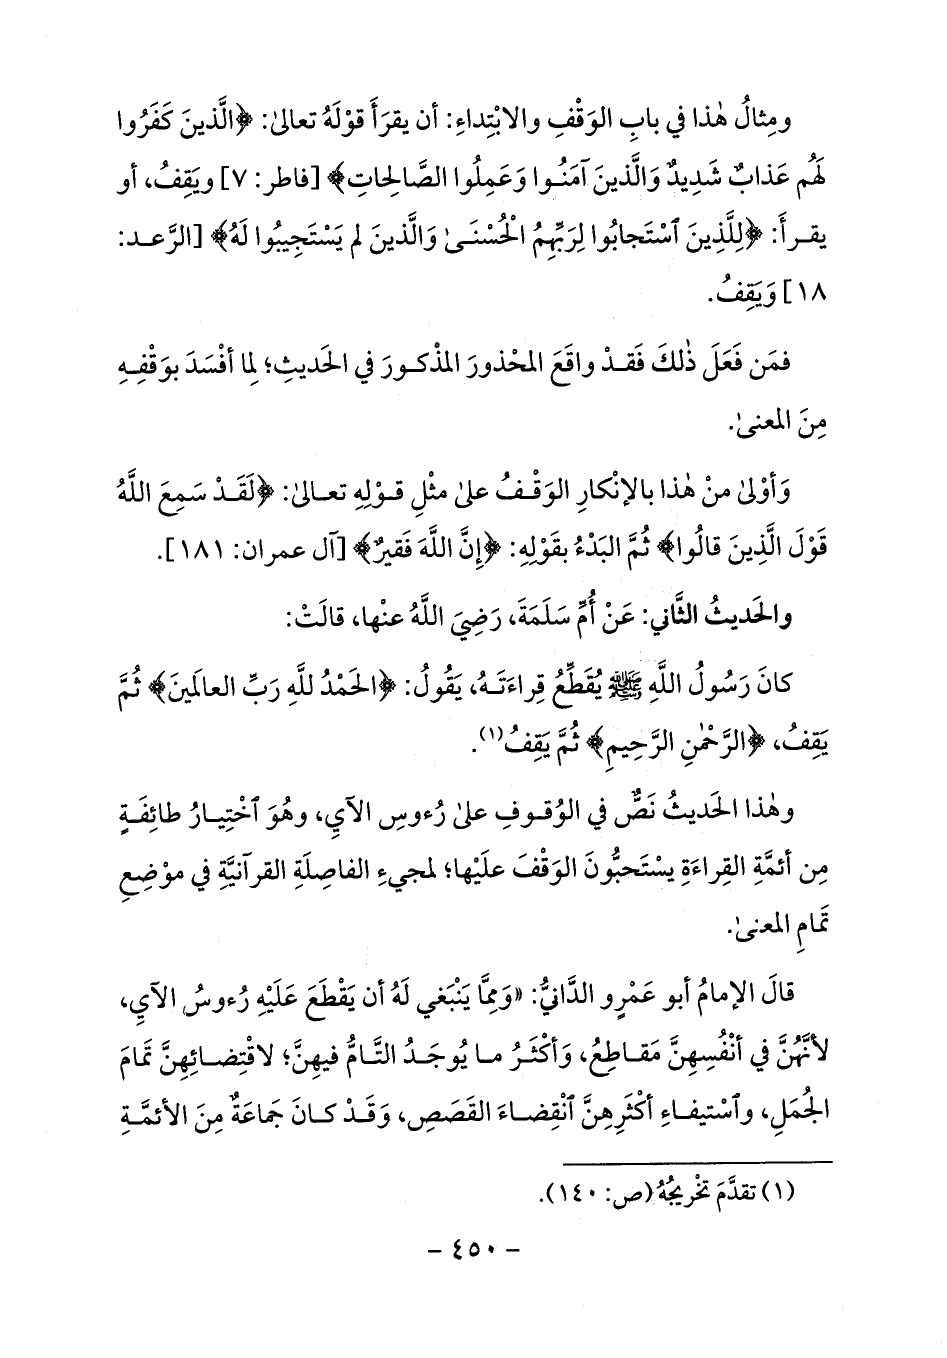 ومِثالُ هٰذا في بابِ الوَقْفِ والابْتِداءِ: أن يقرَأَ قوْلَهُ تعالىٰ: ﴿الَّذينَ كَفَرُوا
لَهُم عَذابٌ شَديدٌ وَالَّذينَ آمَنُـوا وَعَمِلُوا الصَّالِحاتِ﴾ [فاطر: ٧] ويَقِفُ، أو
يقـرأَ: ﴿لِلَّذِينَ ٱسْتَجابُوا لِرَبِّهِمُ الْحُسْنَـىٰ وَالَّذينَ لم يَسْتَجِيبُوا لَهُ﴾ [الرَّعـد:
١٨] وَيَقِفُ.
فمَن فَعَلَ ذٰلكَ فَقَـدْ واقَعَ المحْذورَ المذْكـورَ في الحَديثِ؛ لِما أفْسَدَ بوَقْفِـهِ
مِنَ المعنىٰ.
وَأوْلىٰ منْ هٰذا بالإنْكارِ الوَقْـفُ علىٰ مثْلِ قـوْلِهِ تعـالىٰ: ﴿لَقَـدْ سَمِعَ اللَّهُ
قَوْلَ الَّذِينَ قالُوا﴾ ثُمَّ البَدْءُ بقَوْلِهِ: ﴿إِنَّ اللَّهَ فَقيرٌ﴾ [آل عمران: ١٨١].
والحَديثُ الثَّاني: عَنْ أُمِّ سَلَمَةَ، رَضِيَ اللَّهُ عنْها، قالَتْ:
كانَ رَسُولُ اللَّهِ ﷺ يُقَطِّعُ قِراءَتَـهُ، يَقُولُ: ﴿الحَمْدُ للَّهِ رَبِّ العالَمينَ﴾ ثُمَّ
يَقِفُ، ﴿الرَّحْمٰنِ الرَّحِيمِ﴾ ثُمَّ يَقِفُ(١).
وهٰذا الحَديثُ نَصٌّ في الوُقـوفِ علىٰ رُءوسِ الآيِ، وهُوَ ٱخْتِيـارُ طائِفَـةٍ
مِن أئمَّةِ القِراءَةِ يسْتَحبُّونَ الوَقْفَ علَيْها؛ لمجيءِ الفاصِلَةِ القرآنيَّةِ في موْضِعِ
تَمامِ المعنىٰ.
قالَ الإمامُ أبو عَمْرٍو الدَّانيُّ: «وَمِمَّا يَنْبَغي لَهُ أن يَقْطَعَ عَلَيْهِ رُءوسُ الآيِ،
لأنَّهُنَّ في أنْفُسِهِنَّ مَقـاطِعُ، وَأكْثَـرُ مـا يُوجَـدُ التَّامُّ فيهِنَّ؛ لاقْتِضـائِهِنَّ تَمامَ
الجُمَلِ، وٱسْتيفـاءِ أكْثَرِهِنَّ ٱنْقِضـاءَ القَصَصِ، وَقَـدْ كـانَ جَماعَةٌ مِنَ الأئمَّـةِ
(١) تقدَّمَ تخْريجُهُ (ص: ١٤٠).
- ٤٥٠ -